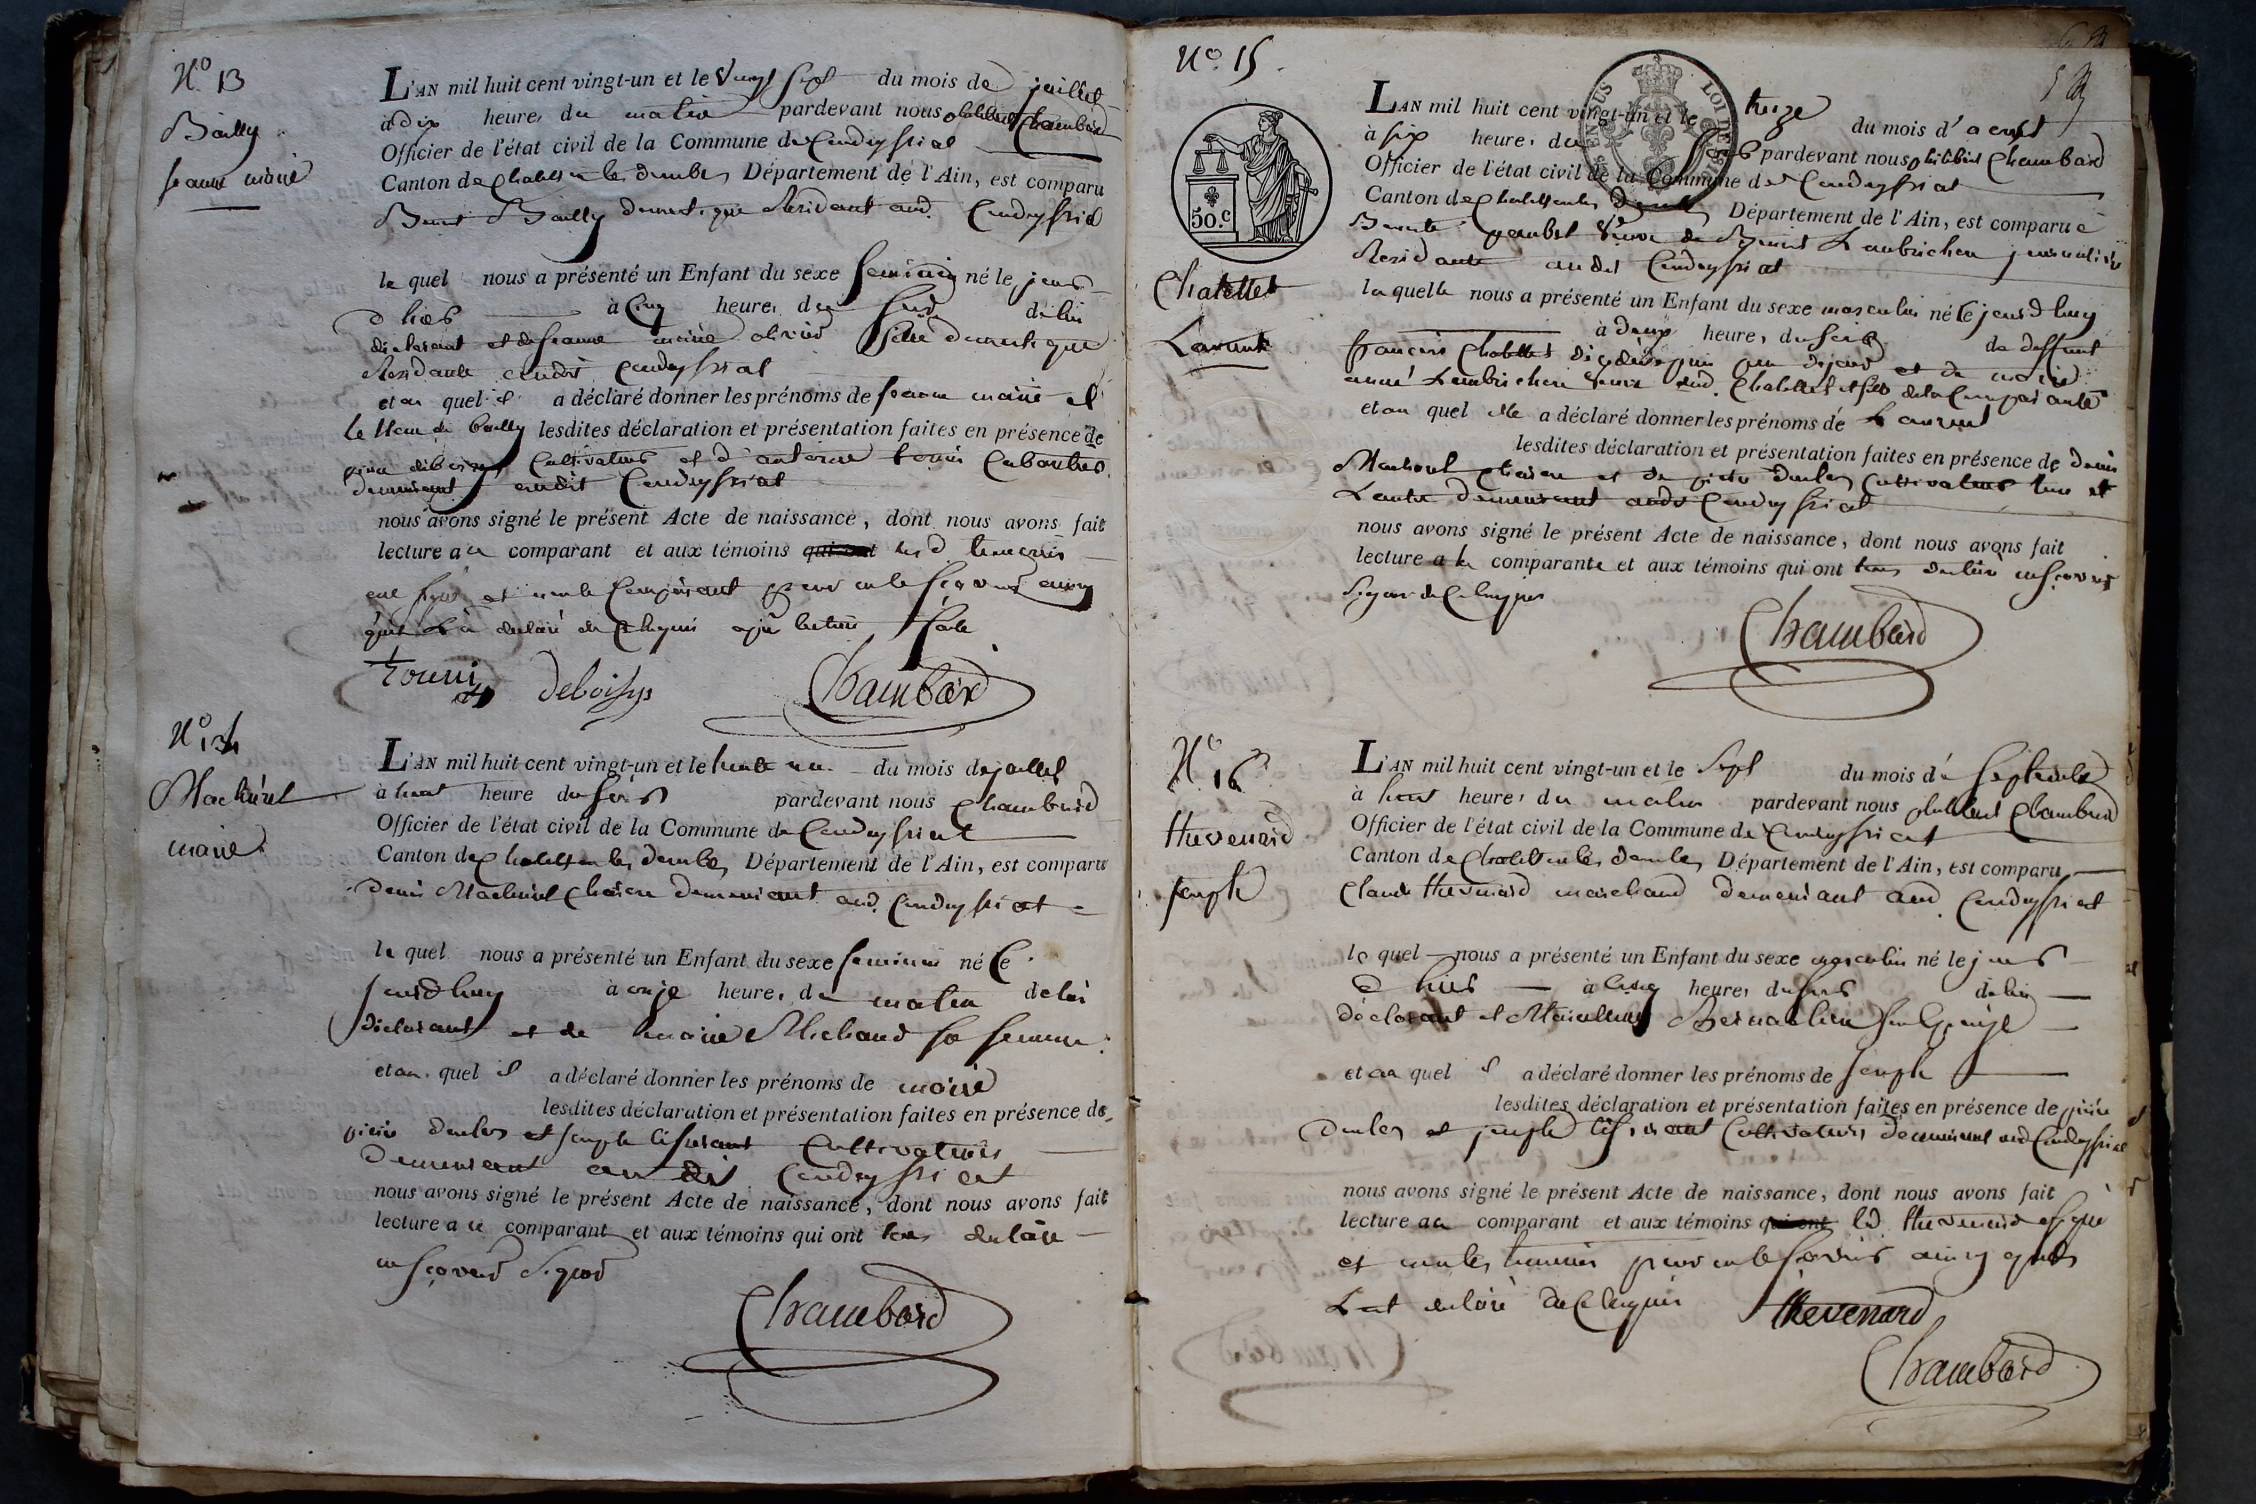 N° 13
Bailly
jeanne marie
L'AN mil huit cent vingt-un et le vingt sept du mois de juillet
à dix heures du matin pardevant nous philibert Chambard
Officier de l'état civil de la Commune de Condeyssiat
Canton de Chatillon les dombes Département de l'Ain, est comparu
Benoit Bailly domestique Residant aud. Condeyssiat
le quel nous a présenté un Enfant du sexe feminin né le jour
d'hier à cinq heures du soir de lui
declarant et de jeanne marie domestique
Residante audit Condeyssiat
et au quel il a déclaré donner les prénoms de jeanne marie et
le nom de bailly lesdites déclaration et présentation faites en présence de
Cultivateur et d'antoine
demeurant audit Condeyssiat
nous avons signé le présent Acte de naissance, dont nous avons fait
lecture au comparant et aux témoins qui ont lesd. temoins
ont signé et non le Comparant pour ne le scavoir ainsy
qu'il l'a declaré de ce requis apres lecture faite
deboissys Chambard
N° 14
Machuret
marie
L'AN mil huit cent vingt-un et le trente un du mois de juillet
à huit heure du soir pardevant nous Chambard
Officier de l'état civil de la Commune de Condeyssiat
Canton de Chatillon les dombes Département de l'Ain, est comparu
Denis Machuret demeurant aud. Condeyssiat
le quel nous a présenté un Enfant du sexe feminin né Ce
jourdhuy à onze heures du matin de lui
declarant et de marie Michaud sa femme
et au quel il a déclaré donner les prénoms de marie
lesdites déclaration et présentation faites en présence de
pierre et joseph Cultivateurs
demeurant audit Condeyssiat
nous avons signé le présent Acte de naissance, dont nous avons fait
lecture au comparant et aux témoins qui ont tous declaré
ne scavoir signer
Chambard
N° 15
50.c
LOI DE
Chatellet
Laurent
L'AN mil huit cent vingt-un et le treize du mois d'aoust
à six heures du soir pardevant nous philibert Chambard
Officier de l'état civil de la Commune de Condeyssiat
Canton de Chatillon les Dombes Département de l'Ain, est comparue
Benoite veuve de Benoit Lambrichon journaliere
Residante audit Condeyssiat
la quelle nous a présenté un Enfant du sexe masculin né Cejourdhuy
à deux heures du soir de deffunt
françois Chatellet et de marie
anne Lambrichon veuve dud. Chatellet et fille de la Comparante
et au quel elle a déclaré donner les prénoms de Laurent
lesdites déclaration et présentation faites en présence de denis
Machuret et de pierre Cultivateurs l'un et
l'autre demeurant audit Condeyssiat
nous avons signé le présent Acte de naissance, dont nous avons fait
lecture a la comparante et aux témoins qui ont tous declaré ne scavoir
signer de Ce requis
Chambard
N° 16
thevenard
joseph
L'AN mil huit cent vingt-un et le sept du mois de septembre
à huit heures du matin pardevant nous philibert Chambard
Officier de l'état civil de la Commune de Condeyssiat
Canton de Chatillon les dombes Département de l'Ain, est comparu
Claude thevenard marchand demeurant aud. Condeyssiat
le quel nous a présenté un Enfant du sexe masculin né le jour
d'hier à cinq heures du soir de lui
déclarant et
et au quel il a déclaré donner les prénoms de joseph
lesdites déclaration et présentation faites en présence de pierre
et joseph Cultivateurs demeurant aud Condeyssiat
nous avons signé le présent Acte de naissance, dont nous avons fait
lecture au comparant et aux témoins qui ont led. thevenard a signé
et non les temoins pour ne le scavoir ainsy qu'ils
l'ont declaré de Ce requis thevenard
Chambard